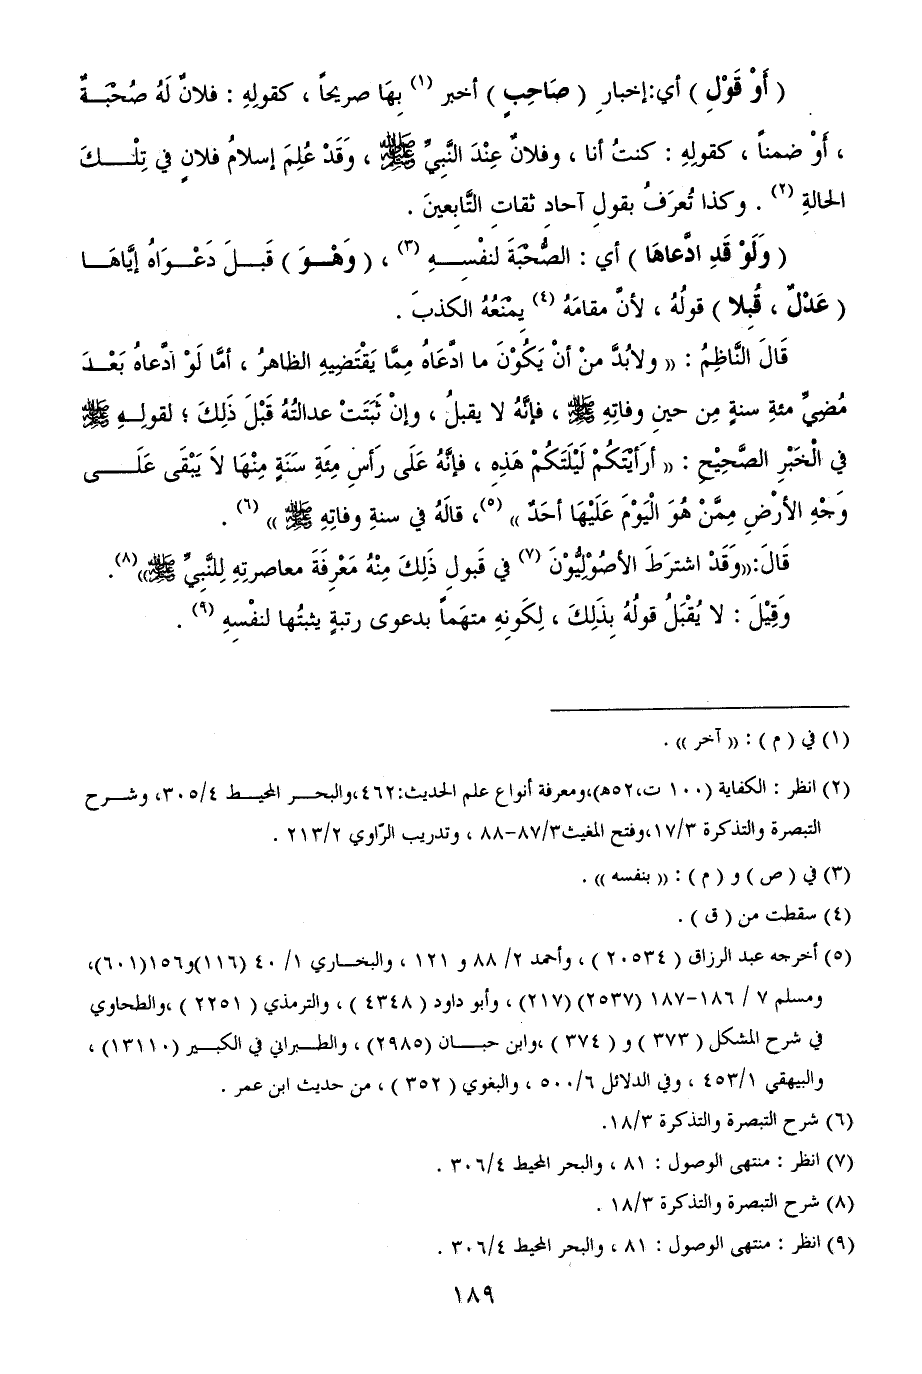 ( أَوْ قَوْلِ ) أي:إخبارِ ( صَاحِبٍ ) أخبر (١) بِهَا صريحاً ، كقولِهِ : فلانٌ لَهُ صُحْبَةٌ
، أَوْ ضمناً ، كقولِهِ : كنتُ أنا ، وفلانٌ عِنْدَ النَّبيِّ ﷺ ، وَقَدْ عُلِمَ إسلامُ فلانٍ في تِلْكَ
الحالةِ (٢) . وكذا تُعرَفُ بقولِ آحادِ ثقاتِ التَّابعينَ .
( وَلَوْ قَدِ ادَّعاهَا ) أي : الصُّحْبَةَ لنفْسِهِ (٣) ، ( وَهْوَ ) قَبلَ دَعْوَاهُ إيَّاهَا
( عَدْلٌ ، قُبِلا ) قولُهُ ، لأنَّ مقامَهُ (٤) يمْنَعُهُ الكذبَ .
قَالَ النَّاظِمُ : «ولابُدَّ منْ أنْ يَكُوْنَ ما ادَّعَاهُ مِمَّا يَقْتَضِيهِ الظاهرُ ، أمَّا لَوْ ادَّعاهُ بَعْدَ
مُضِيِّ مئةِ سنةٍ مِن حينِ وفاتِهِ ﷺ ، فإنَّهُ لا يقبلُ ، وإنْ ثَبَتَتْ عدالتُهُ قَبْلَ ذَلِكَ ؛ لقولِهِ ﷺ
في الْخَبْرِ الصَّحِيْحِ : « أرَأيْتَكُمْ لَيْلَتَكُمْ هَذِهِ ، فإنَّهُ عَلَى رَأسِ مِئَةِ سَنَةٍ مِنْهَا لاَ يَبْقَى عَلَى
وَجْهِ الأرْضِ مِمَّنْ هُوَ الْيَوْمَ عَلَيْهَا أحَدٌ » (٥)، قالَهُ في سنةِ وفاتِهِ ﷺ » (٦) .
قَالَ:«وَقَدْ اشترطَ الأصُوْلِيُّوْنَ (٧) في قبولِ ذَلِكَ مِنْهُ مَعْرِفَةَ معاصرتِهِ لِلنَّبيِّ ﷺ»(٨).
وَقِيْلَ : لا يُقْبَلُ قولُهُ بِذَلِكَ ، لِكَونِهِ متهماً بدعوى رتبةٍ يثبتُها لنفْسِهِ (٩) .
(١) في ( م ) : « آخر » .
(٢) انظر : الكفاية (١٠٠ ت،٥٢ه)،ومعرفة أنواع علم الحديث:٤٦٢،والبحر المحيط ٣٠٥/٤، وشرح
التبصرة والتذكرة ١٧/٣،وفتح المغيث٨٧/٣-٨٨ ، وتدريب الرّاوي ٢١٣/٢ .
(٣) في ( ص ) و ( م ) : « بنفسه » .
(٤) سقطت من ( ق ) .
(٥) أخرجه عبد الرزاق ( ٢٠٥٣٤ ) ، وأحمد ٢/ ٨٨ و ١٢١ ، والبخاري ١/ ٤٠ (١١٦)و١٥٦(٦٠١)،
ومسلم ٧ / ١٨٦-١٨٧ (٢٥٣٧) (٢١٧) ، وأبو داود ( ٤٣٤٨ ) ، والترمذي ( ٢٢٥١ ) ،والطحاوي
في شرح المشكل ( ٣٧٣ ) و ( ٣٧٤ ) ،وابن حبان (٢٩٨٥) ، والطبراني في الكبير (١٣١١٠) ،
والبيهقي ٤٥٣/١ ، وفي الدلائل ٥٠٠/٦ ، والبغوي ( ٣٥٢ ) ، من حديث ابن عمر .
(٦) شرح التبصرة والتذكرة ١٨/٣.
(٧) انظر : منتهى الوصول : ٨١ ، والبحر المحيط ٣٠٦/٤ .
(٨) شرح التبصرة والتذكرة ١٨/٣ .
(٩) انظر : منتهى الوصول : ٨١ ، والبحر المحيط ٣٠٦/٤ .
١٨٩